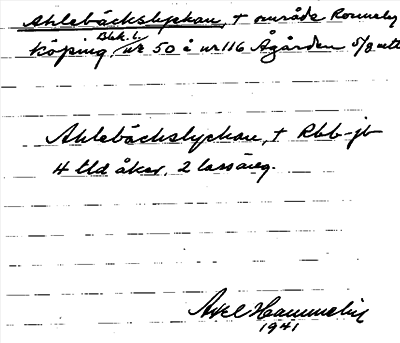 Ahlebäckslyckan, + område Ronneby
Blek. l.
köping, nr 50 å nr 116 Ågården 5/8 mtl
Ahlebäckslyckan, + Rbb-jb
4 tld åker, 2 lassäng.
Axel Hammelin
1941